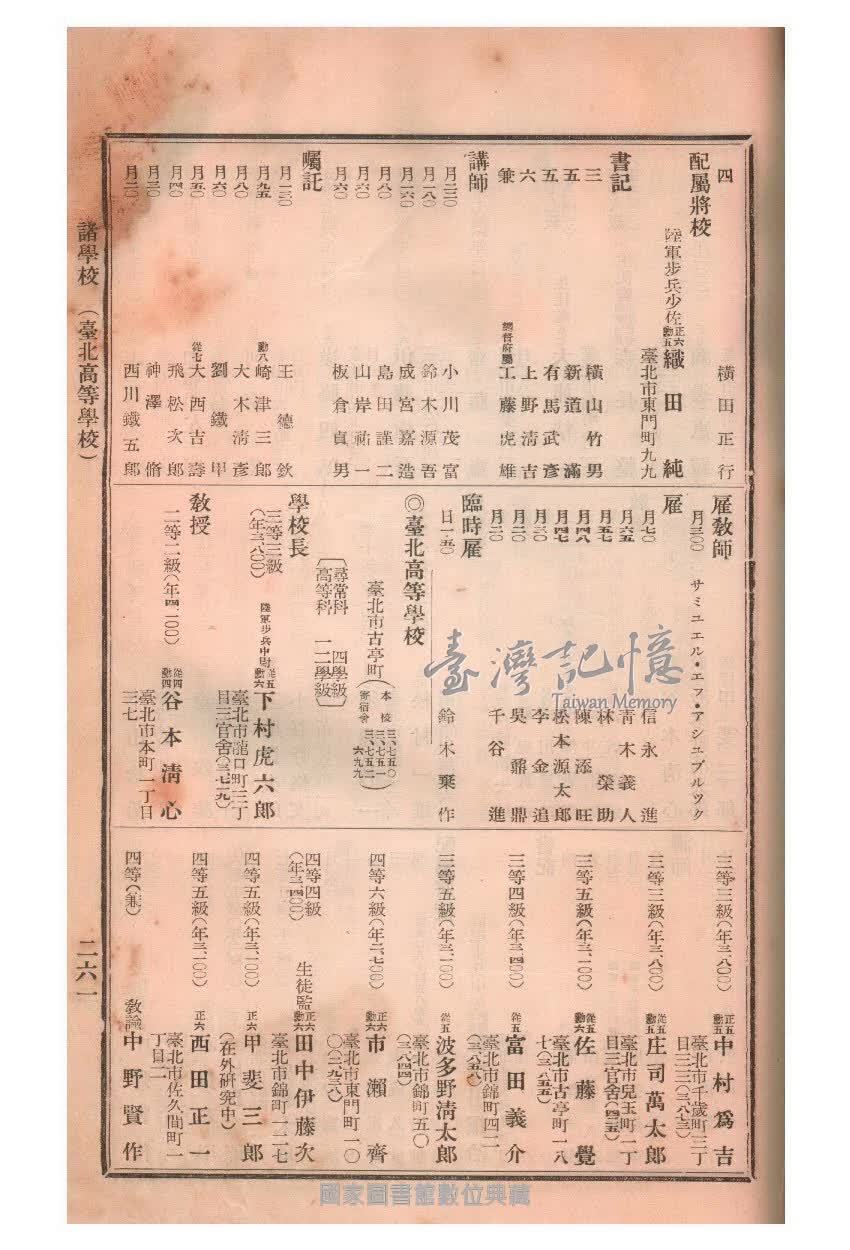 四　横田正行
配屬將校
陸軍步兵少佐 正六勳五 織田純
臺北市東門町九九
書記
三　横山竹男
五　新道滿
五　有馬武彥
六　上野淸吉
兼　總督府屬 工藤虎雄
講師
月二二〇　小川茂富
月一八〇　鈴木源吾
月一六〇　成宮嘉造
月八〇　島田謹二
月六〇　山岸祐一
月六〇　板倉貞男
囑託
月一三〇　王德欽
月九五　勳八 崎津三郎
月八〇　大木淸彥
月六〇　劉鐵甲
月五〇　從七 大西吉壽
月四〇　飛松次郎
月三〇　神澤脩
月二〇　西川鐵五郎
雇敎師
月三〇〇　サミユエル・エフ・アシユブルツク
雇
月七〇　信永進
月六五　靑木義人
月五七　林榮助
月四八　陳添旺
月四七　松本源太郎
月三〇　李金追
月二〇　吳鼎鼎
月二〇　千谷進
臨時雇
日一・五〇　鈴木乗作
◎臺北高等學校
臺北市古亭町（本校 三、七五〇 三、七五一 寄宿舍 三、七五二 六九九）
〔尋常科　四學級
高等科　一二學級〕
學校長
三等三級（年三、八〇〇）　陸軍步兵中尉 從五勳六 下村虎六郎
臺北市龍口町三丁
目三官舍（三七二九）
敎授
二等二級（年四、二〇〇）　從四勳四 谷本淸心
臺北市本町一丁目
三七
三等三級（年三、八〇〇）　正五勳五 中村爲吉
臺北市千歲町三丁
目三三（三八七三）
三等三級（年三、八〇〇）　從五勳五 庄司萬太郎
臺北市兒玉町一丁
目三官舍（四四五）
三等五級（年三、一〇〇）　從五勳六 佐藤覺
臺北市古亭町一八
七（三八五五）
三等四級（年三、四〇〇）　從五 富田義介
臺北市錦町四二
三等五級（年三、一〇〇）　從五 波多野淸太郎
臺北市錦町五〇
（三八四四）
四等六級（年二、七〇〇）　正六勳六 市瀨齊
臺北市東門町一〇
〇（二、九三八）
四等四級
（年三、四〇〇）　生徒監 正六勳六 田中伊藤次
臺北市錦町一二七
四等五級（年三、一〇〇）　正六 甲斐三郎
（在外硏究中）
四等五級（年三、一〇〇）　正六 西田正一
臺北市佐久間町一
丁目二
四等（兼）　敎諭 中野賢作
諸學校（臺北高等學校）
二六一
臺灣記憶
Taiwan Memory
國家圖書館數位典藏